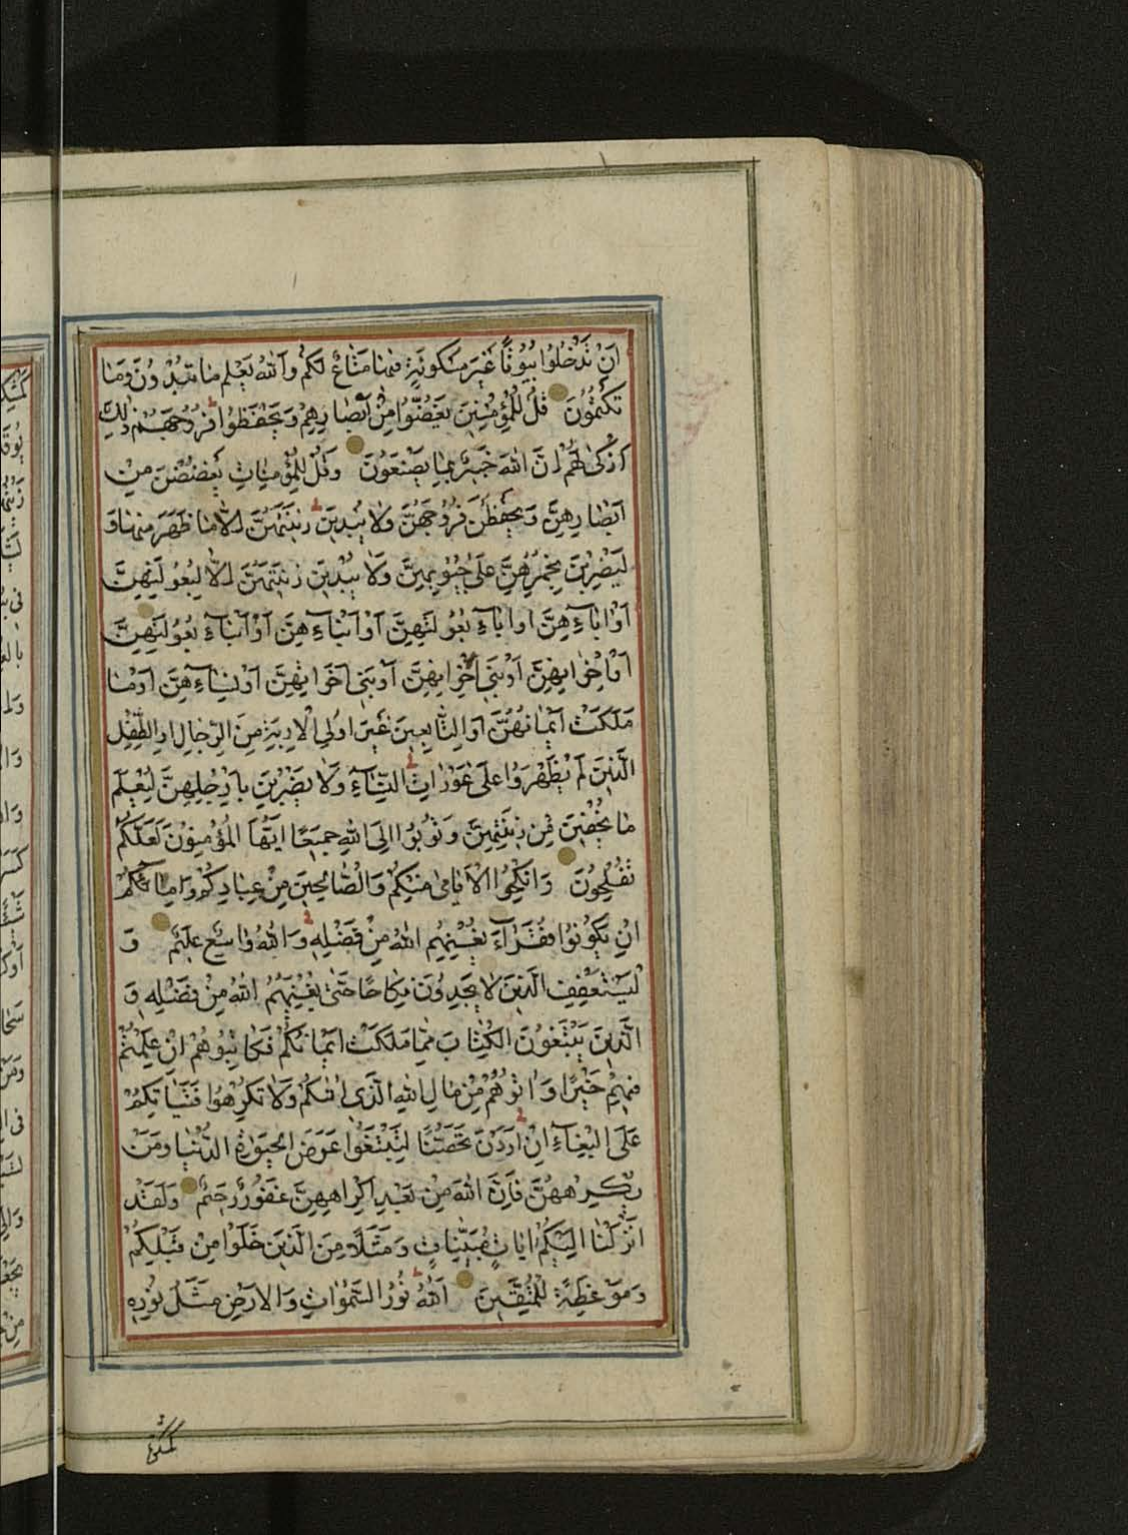 اَنْ تَدْخُلُوا بُيُوتًا غَيْرَ مَسْكُونَةٍ فيها مَتَاعٌ لَكُمْ وَاللهُ يَعْلَمُ مَا تُبْدُونَ وَمَا
تَكْتُمُونَ قُلْ لِلْمُؤْمِنِينَ يَغُضُّوا مِنْ اَبْصَارِهِمْ وَيَحْفَظُوا فُرُوجَهُمْ ذٰلِكَ
اَزْكىٰ لَهُمْ اِنَّ اللهَ خَبِيرٌ بِمَا يَصْنَعُونَ وَقُلْ لِلْمُؤْمِنَاتِ يَغْضُضْنَ مِنْ
اَبْصَارِهِنَّ وَيَحْفَظْنَ فُرُوجَهُنَّ وَلَا يُبْدِينَ زِينَتَهُنَّ اِلَّا مَا ظَهَرَ مِنْهَا وَ
لْيَضْرِبْنَ بِخُمُرِهِنَّ عَلىٰ جُيُوبِهِنَّ وَلَا يُبْدِينَ زِينَتَهُنَّ اِلَّا لِبُعُولَتِهِنَّ
اَوْ اٰبَاءِهِنَّ اَوْ اٰبَاءِ بُعُولَتِهِنَّ اَوْ اَبْنَاءِهِنَّ اَوْ اَبْنَاءِ بُعُولَتِهِنَّ
اَوْ اِخْوَانِهِنَّ اَوْ بَنِي اِخْوَانِهِنَّ اَوْ بَنِي اَخَوَاتِهِنَّ اَوْ نِسَاءِهِنَّ اَوْ مَا
مَلَكَتْ اَيْمَانُهُنَّ اَوِ التَّابِعِينَ غَيْرِ اُولِي الْاِرْبَةِ مِنَ الرِّجَالِ اَوِ الطِّفْلِ
الَّذِينَ لَمْ يَظْهَرُوا عَلىٰ عَوْرَاتِ النِّسَاءِ وَلَا يَضْرِبْنَ بِاَرْجُلِهِنَّ لِيُعْلَمَ
مَا يُخْفِينَ مِنْ زِينَتِهِنَّ وَتُوبُوا اِلَى اللهِ جَمِيعًا اَيُّهَا الْمُؤْمِنُونَ لَعَلَّكُمْ
تُفْلِحُونَ وَاَنْكِحُوا الْاَيَامىٰ مِنْكُمْ وَالصَّالِحِينَ مِنْ عِبَادِكُمْ وَاِمَائِكُمْ
اِنْ يَكُونُوا فُقَرَاءَ يُغْنِهِمُ اللهُ مِنْ فَضْلِهِ وَاللهُ وَاسِعٌ عَلِيمٌ وَ
لْيَسْتَعْفِفِ الَّذِينَ لَا يَجِدُونَ نِكَاحًا حَتّىٰ يُغْنِيَهُمُ اللهُ مِنْ فَضْلِهِ وَ
الَّذِينَ يَبْتَغُونَ الْكِتَابَ مِمَّا مَلَكَتْ اَيْمَانُكُمْ فَكَاتِبُوهُمْ اِنْ عَلِمْتُمْ
فِيهِمْ خَيْرًا وَاٰتُوهُمْ مِنْ مَالِ اللهِ الَّذِي اٰتٰيكُمْ وَلَا تُكْرِهُوا فَتَيَاتِكُمْ
عَلَى الْبِغَاءِ اِنْ اَرَدْنَ تَحَصُّنًا لِتَبْتَغُوا عَرَضَ الْحَيٰوةِ الدُّنْيَا وَمَنْ
يُكْرِهْهُنَّ فَاِنَّ اللهَ مِنْ بَعْدِ اِكْرَاهِهِنَّ غَفُورٌ رَحِيمٌ وَلَقَدْ
اَنْزَلْنَا اِلَيْكُمْ اٰيَاتٍ مُبَيِّنَاتٍ وَمَثَلًا مِنَ الَّذِينَ خَلَوْا مِنْ قَبْلِكُمْ
وَمَوْعِظَةً لِلْمُتَّقِينَ اَللهُ نُورُ السَّمٰوَاتِ وَالْاَرْضِ مَثَلُ نُورِهِ